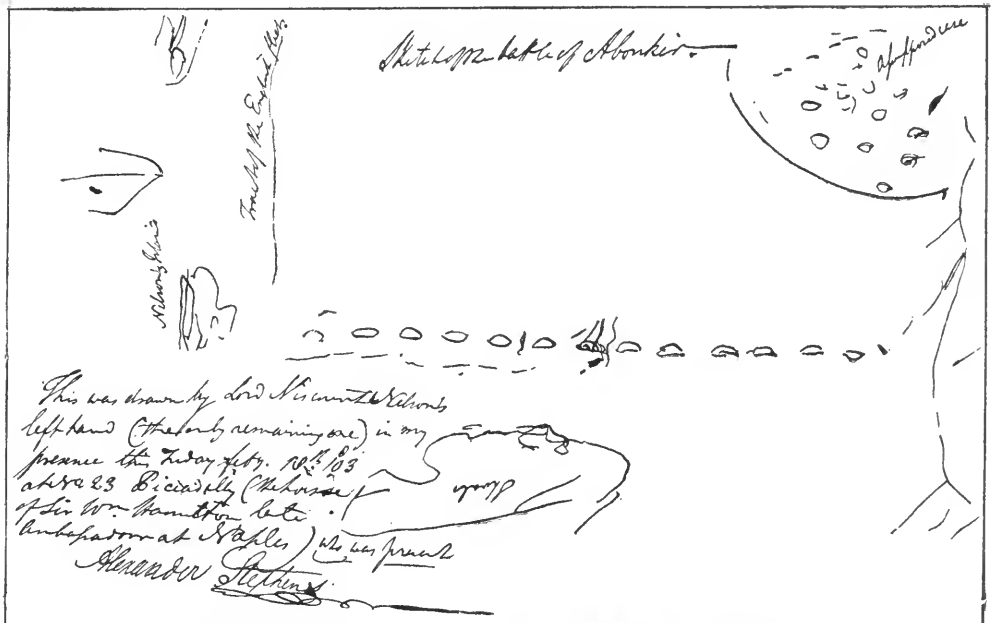 Sketch of the battle of Aboukir.
Track of the English fleet
Nelson's
Shoals
This was drawn by Lord Viscount Nelson's
left hand (the only remaining one) in my
presence this Friday feby. 18th '03
at No 23 Piccadilly (the house
of Sir Wm Hamilton late
Ambassador at Naples) who was present
Alexander Stephens